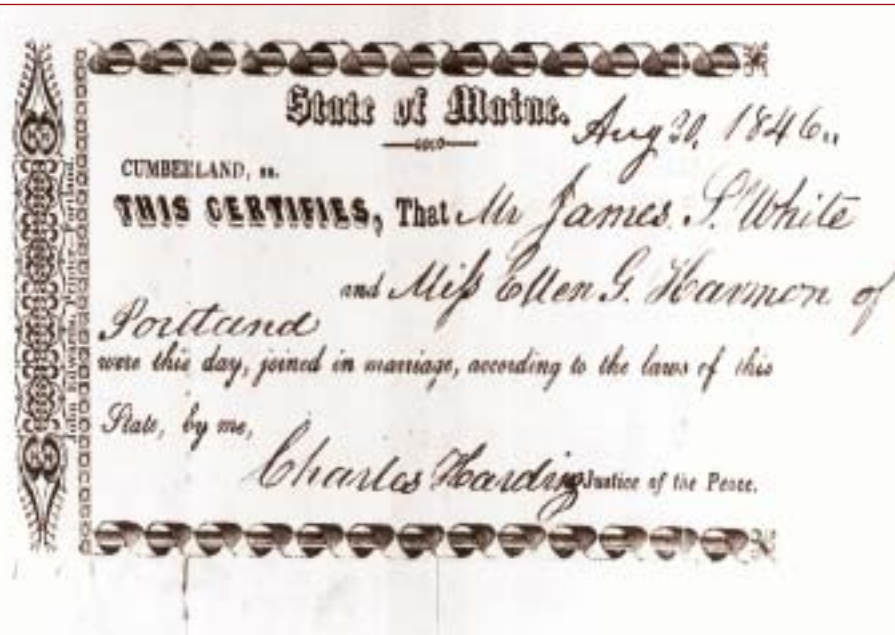 State of Maine.
Aug 30, 1846.
CUMBERLAND, ss.
THIS CERTIFIES, That Mr James S. White
and Miss Ellen G. Harmon of
Portland
were this day, joined in marriage, according to the laws of this
State, by me,
Charles Harding Justice of the Peace.
John Edwards, Printer—Portland.